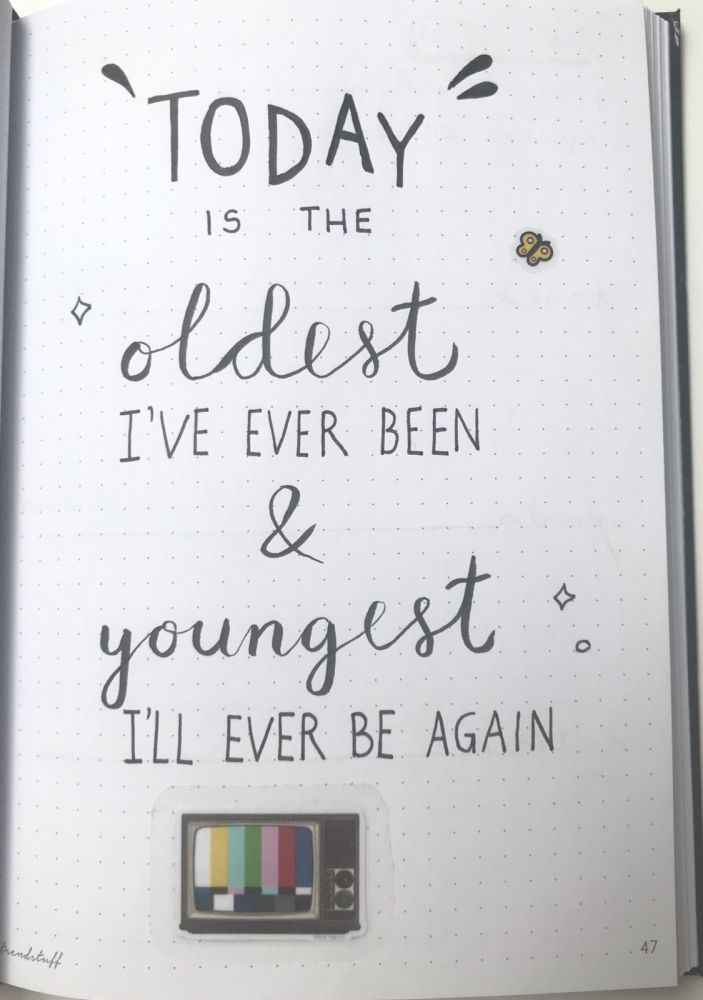 "TODAY"
IS THE
oldest
I'VE EVER BEEN
&
youngest
I'LL EVER BE AGAIN
trendstuff
47